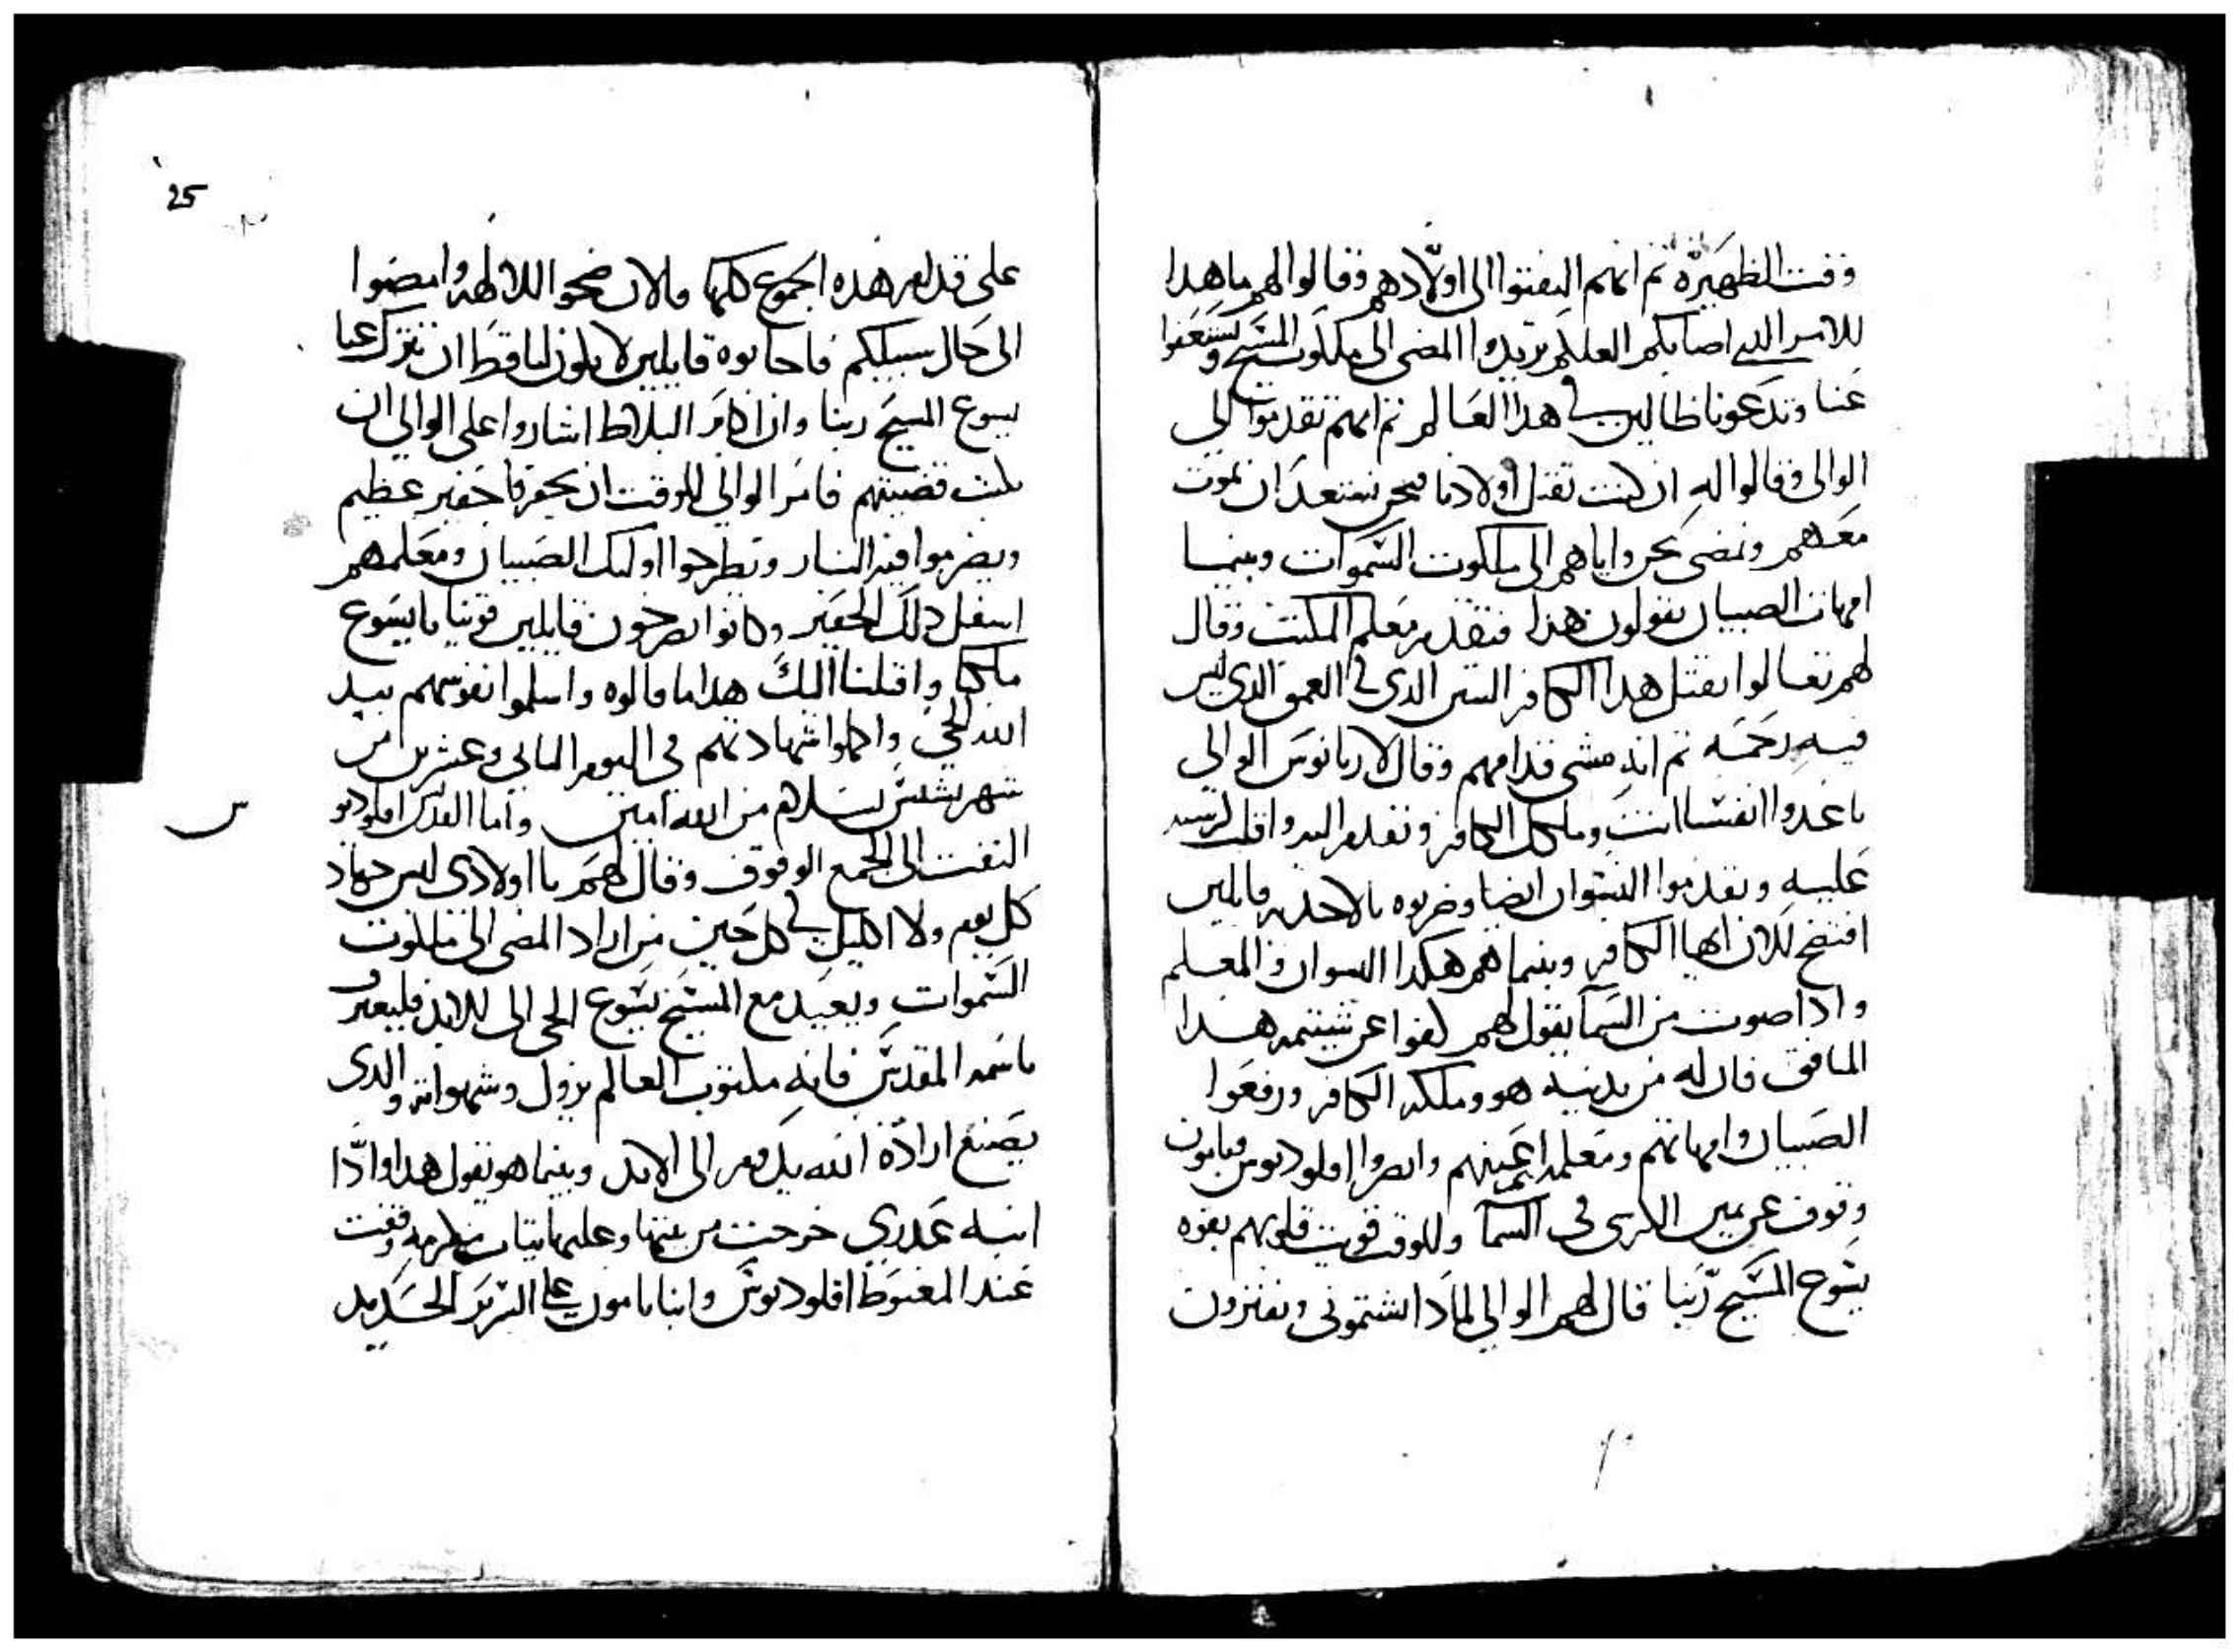 وقت الظهيرة ثم انهم التفتوا الى اولادهم وقالوا لهم ما هدا
الامر الدي اصابكم العلكم تريدوا المضى الى ملكوت المسيح وتستعفوا
عنا وتدعونا ظالين في هدا العالم ثم انهم تقدموا الى
الوالى وقالوا له ان كنت تقتل اولادنا فنحن نستعد ان نموت
معهم ونمضى نحن واياهم الى ملكوت السموات وبينما
امهات الصبيان يقولون هدا فتقدم معلم المكتب وقال
لهم تعالوا نقتل هدا الكافر الدى في العمق الدى ليس
فيه رحمه ثم انه مشى قدامهم وقال لاريانوس الوالى
يا عدوا انفسنا انت وملكك الكافر وتقدم اليه واقلب كرسيه
عليه وتقدموا النسوان ايضا وضربوه بالاحديه قايلين
افتضح الان ايها الكافر وبينما هم هكدا النسوان والمعلم
وادا صوت من السما يقول لهم كفوا عن شتيمه هدا
المنافق فان له من يدينه هو وملكه الكافر ورفعوا
الصبيان وامهاتهم ومعلمهم اعينهم وابصروا اقلوديوس
وقوف عن يمين الكرسى فى السما وللوقت قويت قلوبهم بقوه
يسوع المسيح ربنا قال لهم الوالي لمادا تشتمونى وتفترون
25
على قدام هده الجموع كلها والان ضحوا للالهه وامضوا
الى حال سبيلكم فاجابوه قايلين لا يكون لنا قط ان نترك عنا
يسوع المسيح ربنا وان اكابر البلاط اشاروا على الوالي ان
يكتب قضيتهم فامر الوالى للوقت ان يحفروا حفير عظيم
ويضرموا فيه النار وتطرحوا اوليك الصبيان ومعلمهم
اسفل دلك الحفير وكانوا يصرخون قايلين قوينا يا يسوع
ملكنا واقبلنا اليك هدا ما قالوه واسلموا نفوسهم بيد
الله الحي واكملوا شهادتهم في اليوم التاني وعشرين من
شهر بشنس بسلام من الله امين واما القديس اقلوديوس
التفت الى الجمع الوقوف وقال لهم يا اولادى ليس جهاد
كل يوم ولا اكليل في كل حين من اراد المضى الى ملكوت
السموات ويعيد مع المسيح يسوع الحى الى الابد فليعترف
باسمه المقدس فانه مكتوب العالم يزول وشهواته والدى
يصنع ارادة الله يدوم الى الابد وبينما هو يقول هدا وادا
ابنه عدري خرجت من بيتها وعليها تياب ووقفت
عند المغبوط اقلوديوس وابنا بامون على السرير الحديد